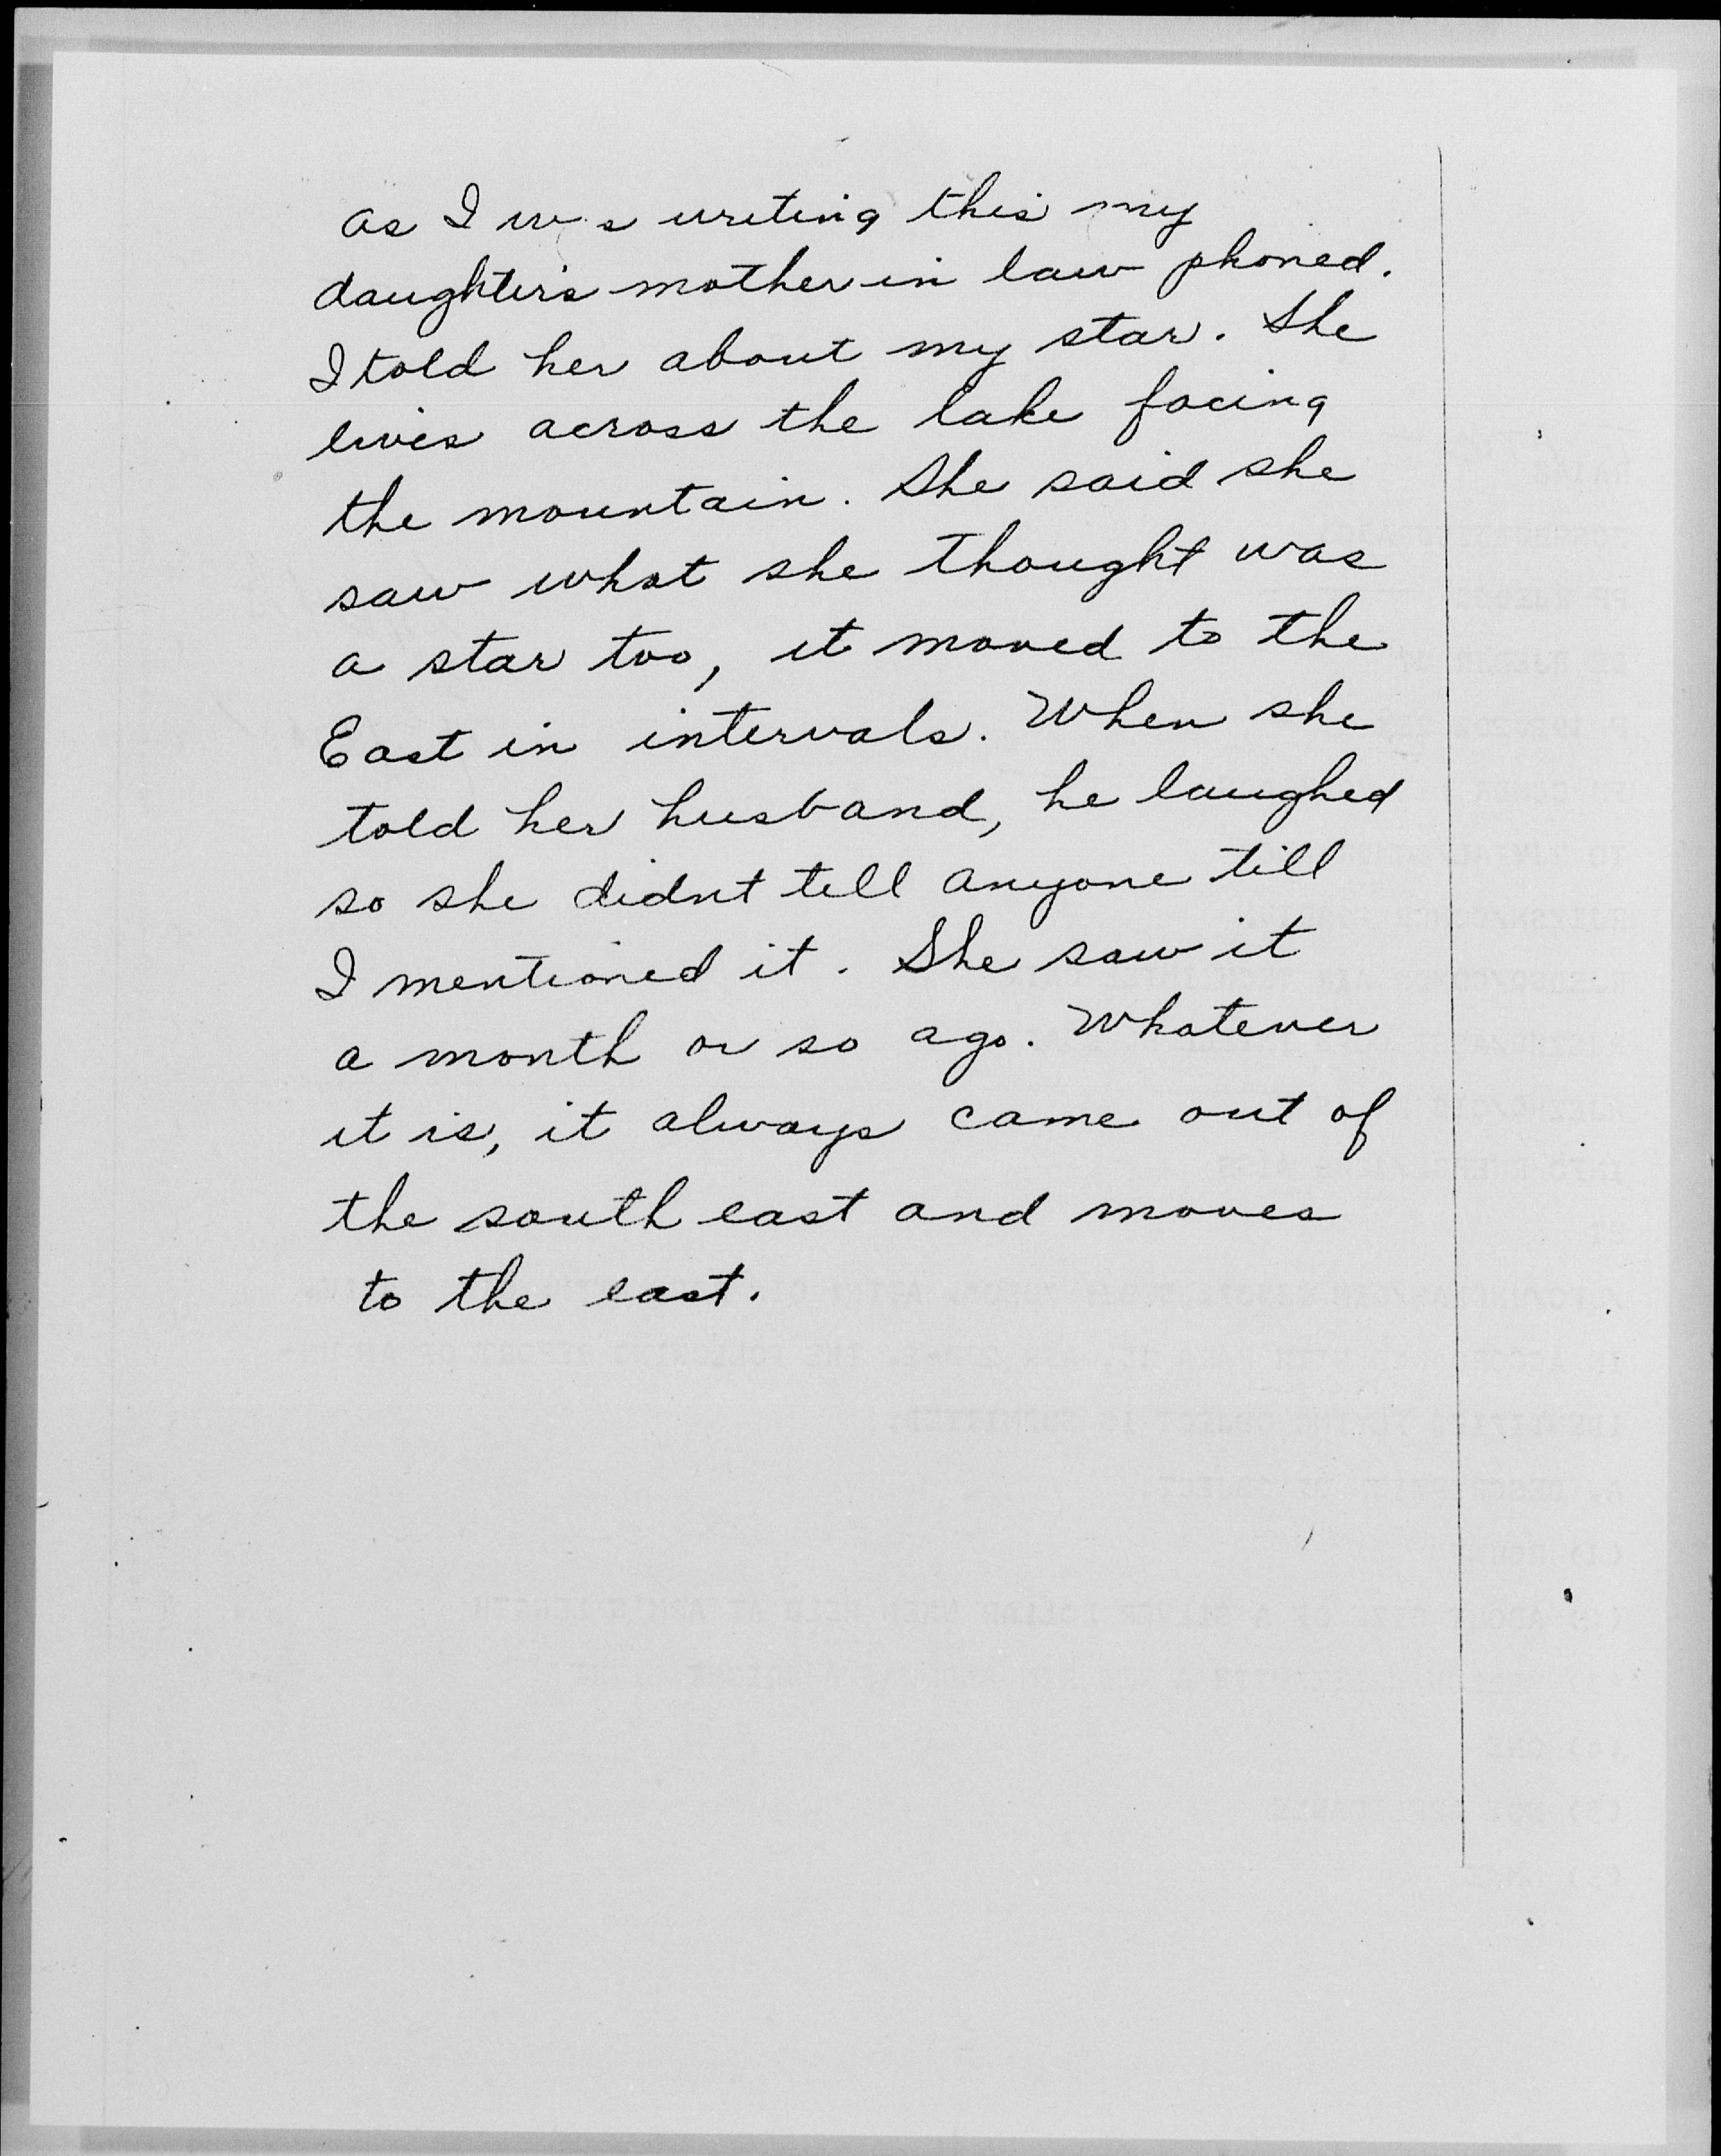 as I was writing this my
daughter's mother in law phoned.
I told her about my star. She
lives across the lake facing
the mountain. She said she
saw what she thought was
a star too, it moved to the
East in intervals. When she
told her husband, he laughed
so she didnt tell anyone till
I mentioned it. She saw it
a month or so ago. Whatever
it is, it always came out of
the south east and moves
to the east.